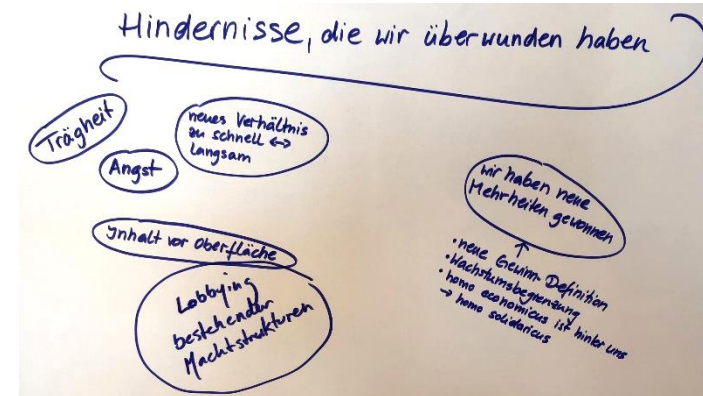 Hindernisse, die wir überwunden haben
Trägheit
Angst
neues Verhältnis
zu schnell ↔
langsam
Inhalt vor Oberfläche
Lobbying
bestehender
Machtstrukturen
wir haben neue
Mehrheiten gewonnen
↑
• neue Gewinn-Definition
• Wachstumsbegrenzung
• homo economicus ist hinter uns
→ homo solidaricus